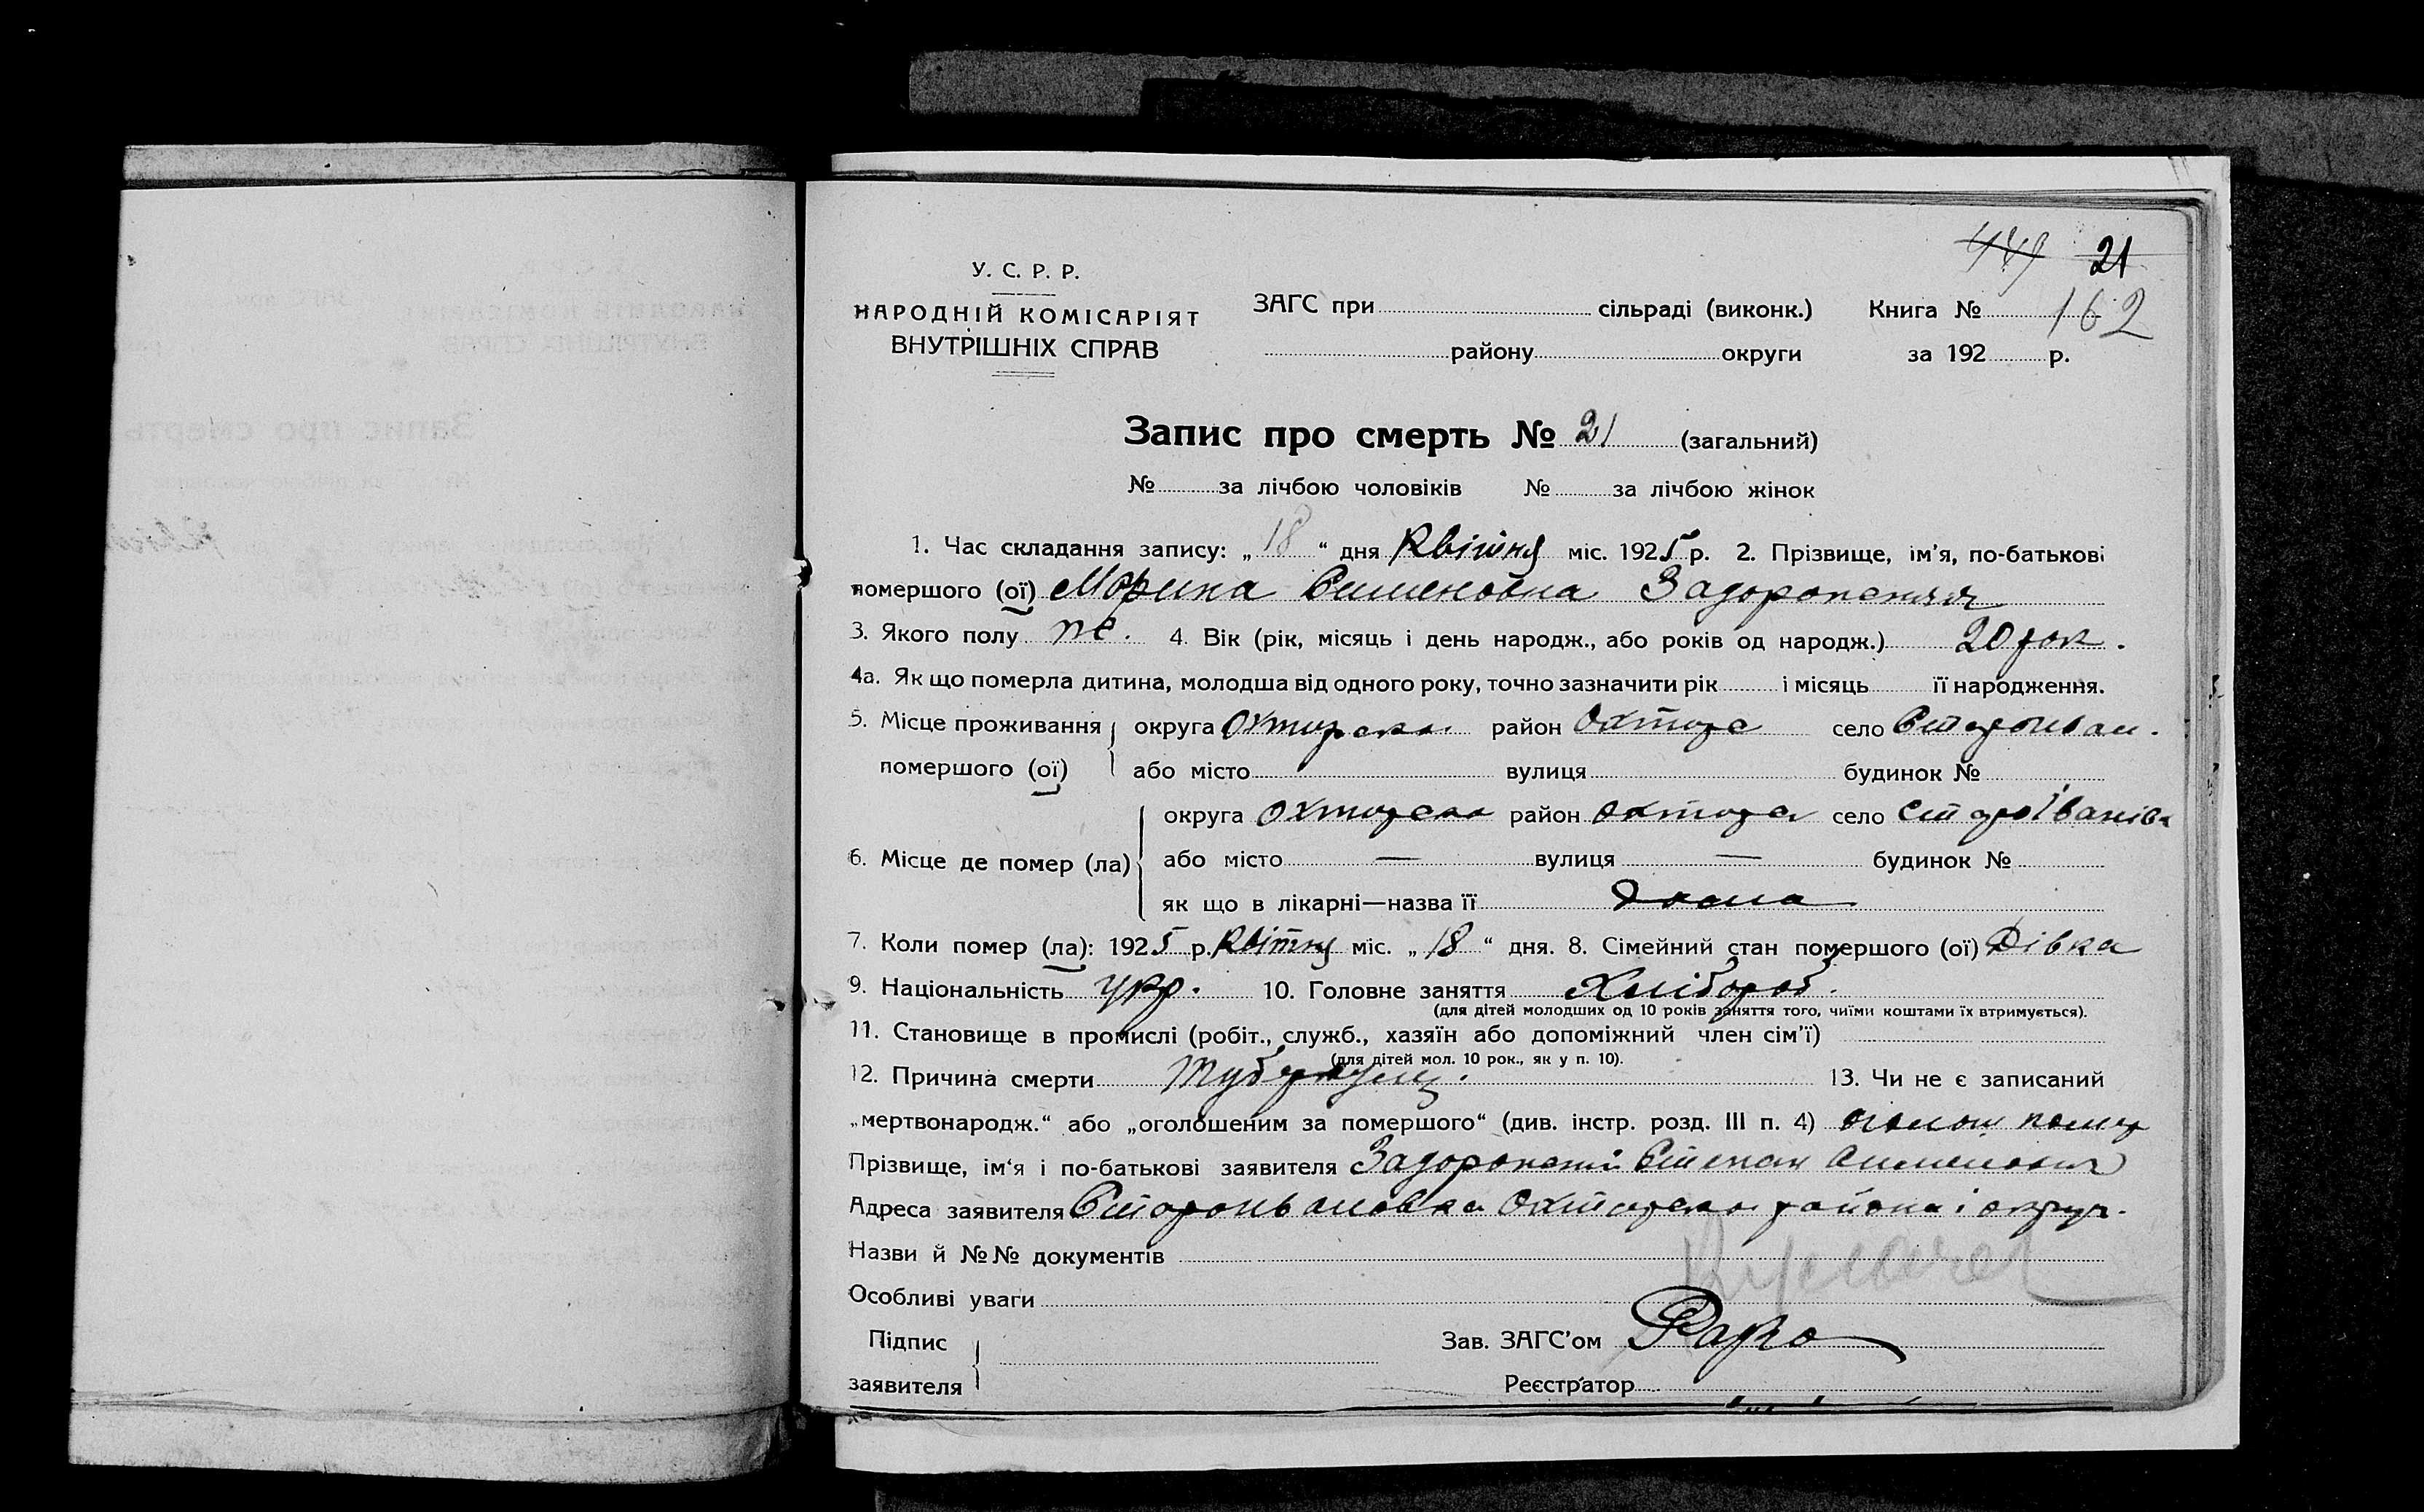 449 21
У. С. Р. Р.
НАРОДНІЙ КОМІСАРІЯТ
ВНУТРІШНІХ СПРАВ
ЗАГС при сільраді (виконк.) Книга № 162
району округи за 192 р.
Запис про смерть № 21 (загальний)
№ за лічбою чоловіків № за лічбою жінок
1. Час складання запису: „18“ дня Квітня міс. 1925 р. 2. Прізвище, ім’я, по-батькові
помершого (ої) Морина Сименовна Задорожняя
3. Якого полу же. 4. Вік (рік, місяць і день народж., або років од народж.) 20 рок.
4а. Як що померла дитина, молодша від одного року, точно зазначити рік і місяць її народження.
5. Місце проживання округа Охтирска район Охтирс село Староиван.
помершого (ої) або місто вулиця будинок №
округа Охтирска район Охтирс село СтароІванівк
6. Місце де помер (ла) або місто — вулиця — будинок №
як що в лікарні—назва її дома
7. Коли помер (ла): 1925 р. Квітня міс. „18“ дня. 8. Сімейний стан помершого (ої) Дівка
9. Національність укр. 10. Головне заняття Хлібороб.
(для дітей молодших од 10 років заняття того, чиїми коштами їх втримується).
11. Становище в промислі (робіт., служб., хазяїн або допоміжний член сім’ї)
(для дітей мол. 10 рок., як у п. 10).
12. Причина смерти Туберкульз. 13. Чи не є записаний
„мертвонародж.“ або „оголошеним за помершого“ (див. інстр. розд. III п. 4) оголош помер
Прізвище, ім‘я і по-батькові заявителя Задорожний Степан Сименович
Адреса заявителя Староивановка Охтирскаго района і округи.
Назви й №№ документів
Особливі уваги
Підпис
заявителя
Зав. ЗАГС’ом
Реєстратор